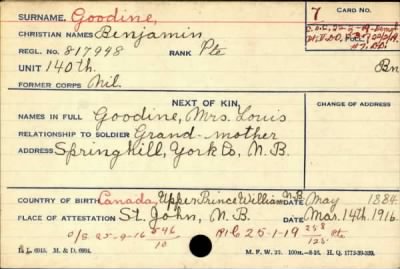 SURNAME. Goodine, 7 CARD NO.
CHRISTIAN NAMES Benjamin
REGL. NO. 817948 RANK Pte
UNIT 140th. Bn
FORMER CORPS Nil.
NEXT OF KIN. CHANGE OF ADDRESS
NAMES IN FULL Goodine, Mrs. Louis
RELATIONSHIP TO SOLDIER Grand-mother
ADDRESS Springhill, York Co, N.B.
COUNTRY OF BIRTH Canada, Upper Prince William N.B. DATE May 1884
PLACE OF ATTESTATION St. John, N.B. DATE Mar. 14th 1916.
O/S 25-9-16 546/10 R/C 25-1-19 258/125 Pte
M. & D. 6994. M. F. W. 22. H. Q. 1772-39-339.